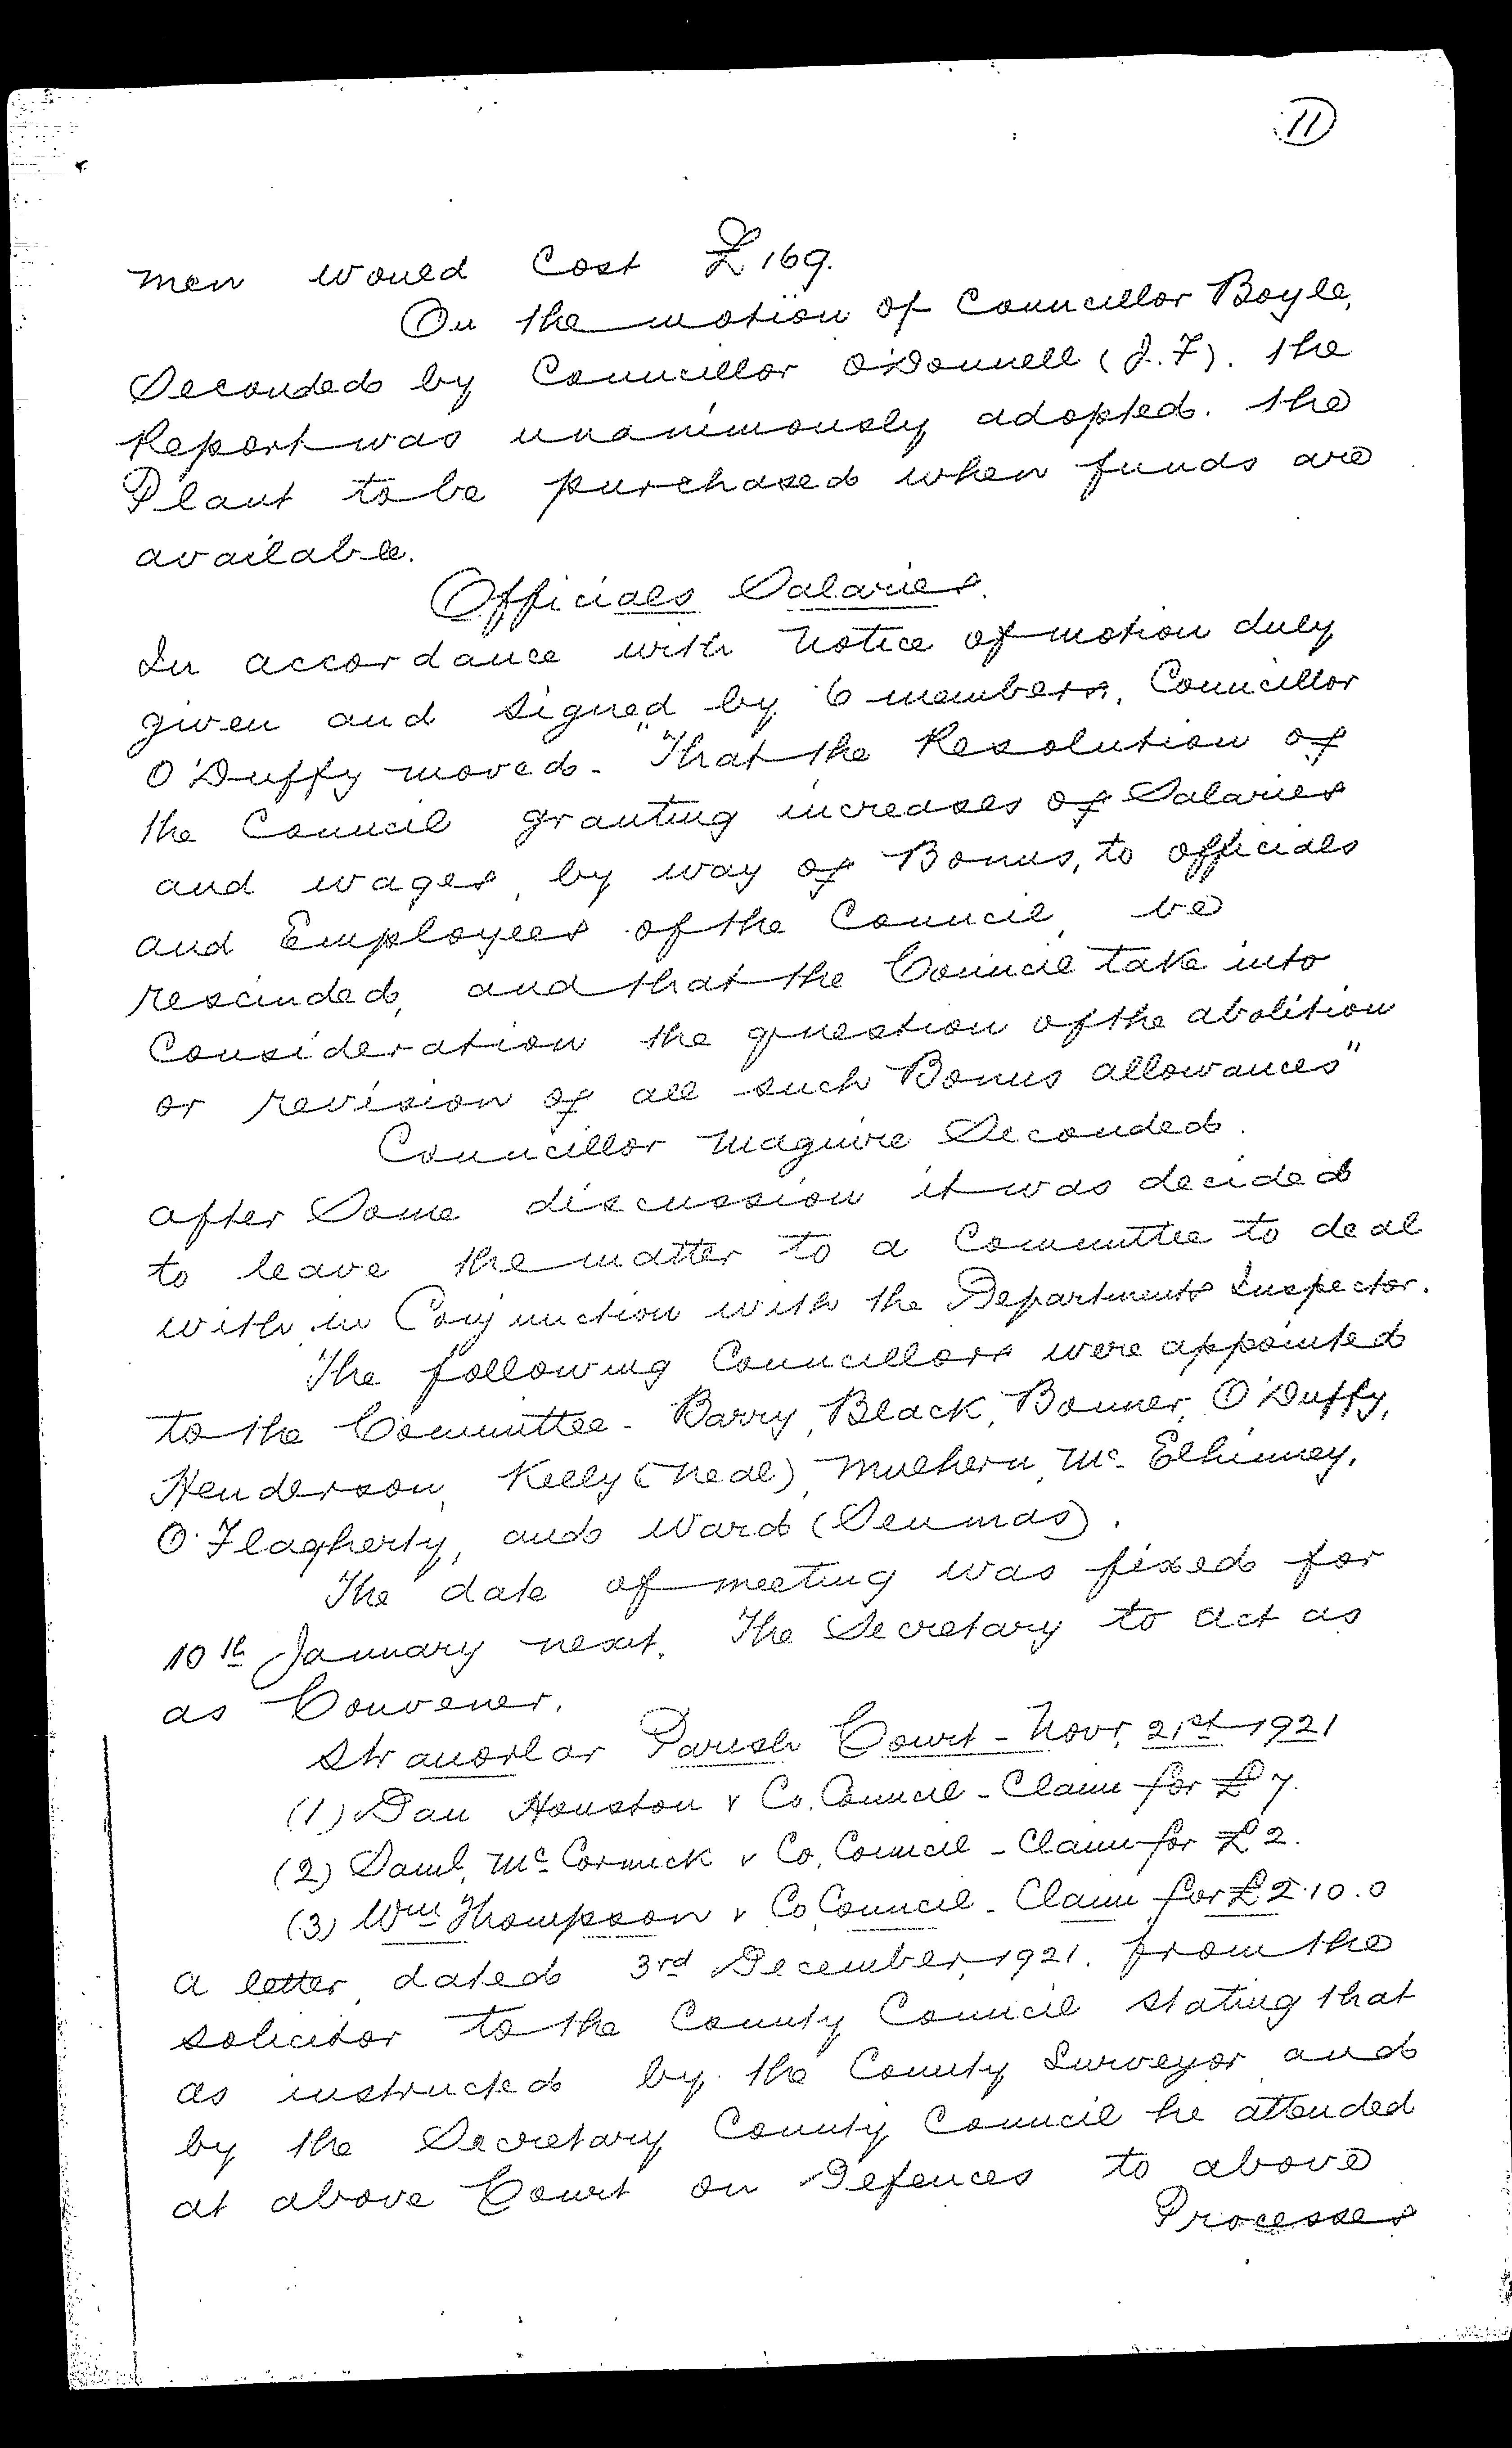 11
men would Cost £169.
On the motion of Councillor Boyle,
Seconded by Councillor O'Donnell (J.F). the
Report was unanimously adopted. the
Plant to be purchased when funds are
available.
Officials Salaries.
In accordance with Notice of motion duly
given and signed by 6 members, Councillor
O'Duffy moved - "That the Resolution of
the Council granting increases of Salaries
and wages, by way of Bonus, to officials
and Employees of the Council, be
rescinded, and that the Council take into
Consideration the question of the abolition
or revision of all such Bonus allowances"
Councillor Maguire Seconded.
after Some discussion it was decided
to leave the matter to a Committee to deal
with in Conjunction with the Departments Inspector.
The following Councillors were appointed
to the Committee - Barry, Black, Bonner, O'Duffy,
Henderson, Kelly (Neal), Mulhern, Mc Elhinney,
O'Flagherty, and Ward (Seumas).
The date of meeting was fixed for
10th January next. The Secretary to act as
as Convener.
Stranorlar Parish Court - Novr, 21st 1921
(1) Dan Houston v Co. Council - Claim for £7.
(2) Saml. Mc Cormick v Co, Council - Claim for £2.
(3) Wm Thompson v Co Council - Claim for £2.10.0
a letter, dated 3rd December, 1921. from the
solicitor to the County Council stating that
as instructed by the County Surveyor and
by the Secretary County Council he attended
at above Court on Defences to above
Processes